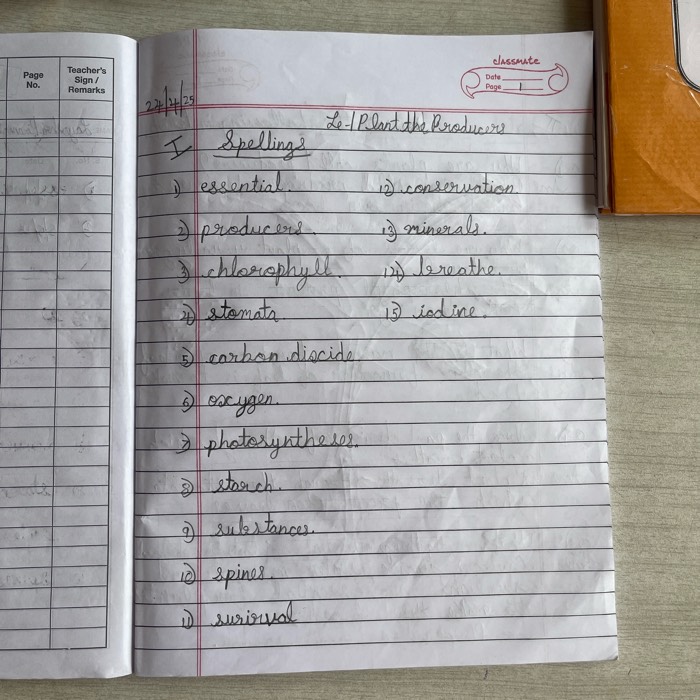 Page No.
Teacher's Sign / Remarks
classmate
Date
Page 1
24/4/25
Le-1 Plant the Producers
I Spellings
1) essential.
2) producers.
3) chlorophyll.
4) stomata
5) carbon dioxide
6) oxygen.
7) photosyntheses.
8) starch.
9) substances.
10) spines.
11) surival
12) conservation
13) minerals.
14) breathe.
15) iodine.